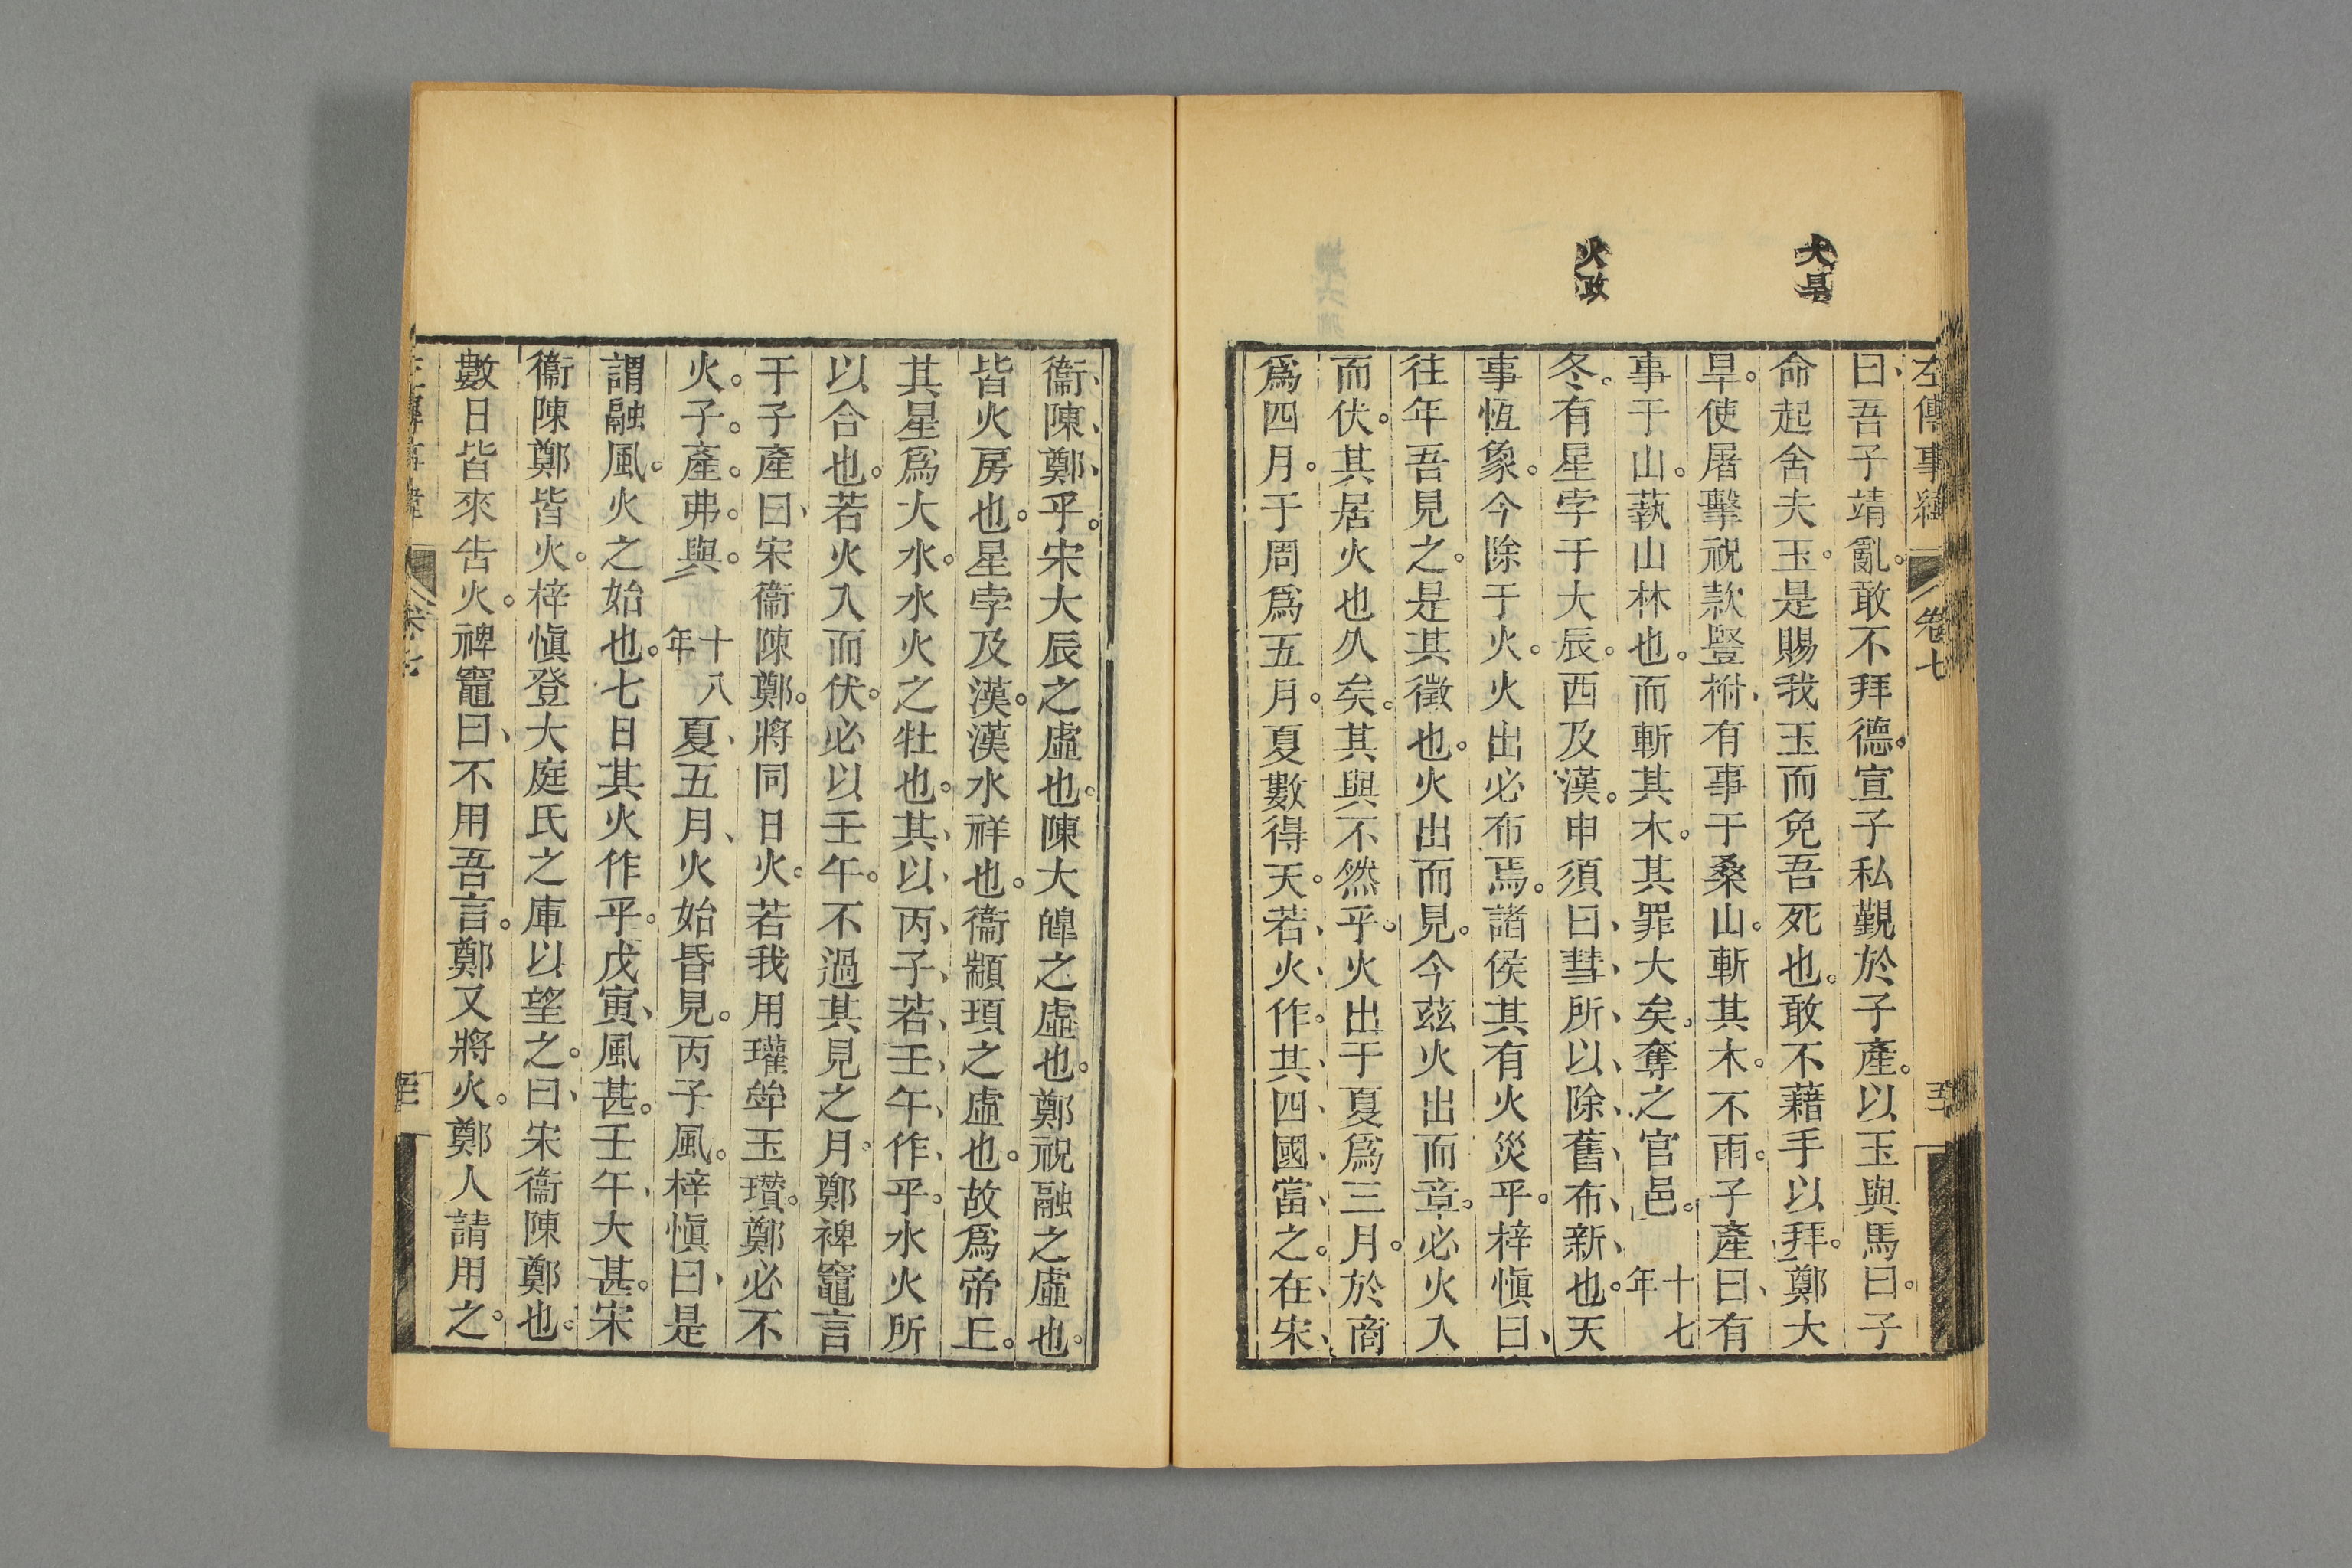 大旱
火政
左傳事緯
卷七
曰、吾子靖亂。敢不拜德。宣子私覲於子產。以玉與馬曰。子
命起舍夫玉。是賜我玉而免吾死也。敢不藉手以拜。鄭大
旱。使屠擊祝款豎柎、有事于桑山。斬其木。不雨。子產曰、有
事于山。蓺山林也。而斬其木。其罪大矣。奪之官邑。十七年
冬。有星孛于大辰。西及漢。申須曰、彗、所、以、除、舊、布、新、也。天
事恆象。今除于火。火出必布焉。諸侯其有火災乎。梓慎曰、
往年吾見之。是其徵也。火出而見。今茲火出而章。必火入
而伏。其居火也久矣。其與不然乎。火出于夏爲三月。於商
爲四月。于周爲五月。夏數得天。若、火、作。其、四、國、當、之。在、宋、
衞、陳、鄭、乎。宋大辰之虛也。陳大皥之虛也。鄭祝融之虛也。
皆火房也。星孛及漢。漢水祥也。衞顓頊之虛也。故爲帝丘。
其星爲大水。水火之牡也。其、以、丙、子、若、壬、午、作、乎。水火所
以合也。若火入而伏。必以壬午。不過其見之月。鄭裨竈言
于子產曰、宋衞陳鄭。將同日火。若我用瓘斝玉瓚。鄭必不
火。子。產。弗。與。十八年夏、五月、火始昏見。丙子風。梓慎曰、是
謂融風。火之始也。七日其火作乎。戊寅、風甚。壬午、大甚。宋
衞陳鄭皆火。梓慎登大庭氏之庫以望之。曰、宋衞陳鄭也。
數日皆來告火。裨竈曰、不用吾言。鄭又將火。鄭人請用之。
卷七